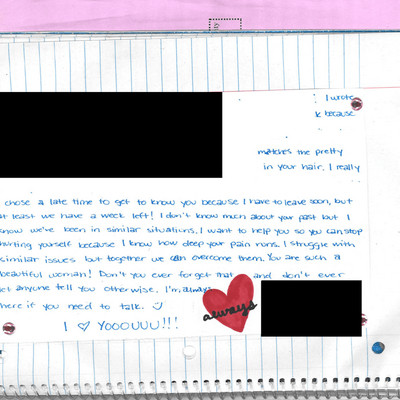 I wrote
because
matches the pretty
in your hair. I really
chose a late time to get to know you because I have to leave soon, but
at least we have a week left! I don't know much about your past but I
know we've been in similar situations. I want to help you so you can stop
hurting yourself because I know how deep your pain runs. I struggle with
similar issues but together we can overcome them. You are such a
beautiful woman! Don't you ever forget that and don't ever
let anyone tell you otherwise. I'm always
here if you need to talk. :)
always
I ♡ YOOOUUU!!!